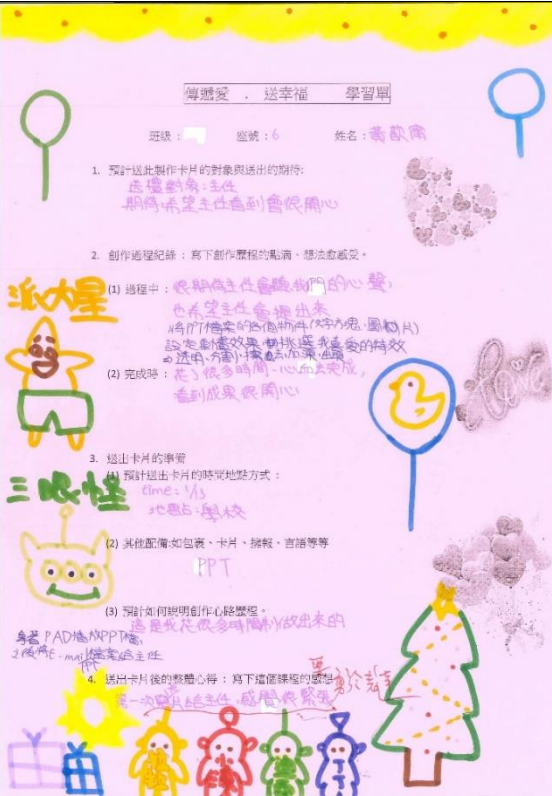 傳遞愛 . 送幸福 學習單
班級： 座號：6 姓名：黃歆
1. 預計送此製作卡片的對象與送出的期待:
送禮對象:主任
期待希望主任看到會很開心
2. 創作過程紀錄：寫下創作歷程的點滴、想法愈感受。
派大星
(1) 過程中：很期待主任會聽我們的心聲,
也希望主任會
將PPT檔案的各個物件(文字方塊、圖片)
設定動畫效果 挑選我喜愛的特效
(2) 完成時：花了很多時間、心血去完成,
看到成果很開心
love
3. 送出卡片的準備
(1) 預計送出卡片的時間地點方式：
三眼怪
time: 1/13
地點:學校
(2) 其他配備:如包裹、卡片、擁報、言語等等
PPT
(3) 預計如何說明創作心路歷程。
這是我花很多時間 做出來的
PAD PPT檔
E-mail 檔案給主任
4. 送出卡片後的整體心得：寫下這個課程的感想
第一次 給主任,感覺很緊張